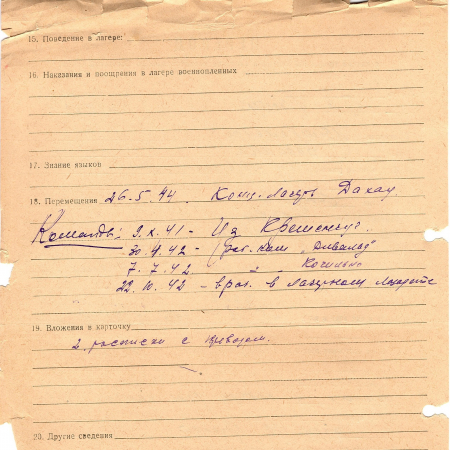 15. Поведение в лагере:
16. Наказания и поощрения в лагере военнопленных
17. Знание языков
18. Перемещения 26.5.44. Конц. лагерь Дахау
Команды: 9.X.41 -
30.4.42 -
7.7.42 "
22.10.42 - врач. в лагерном лазарете
19. Вложения в карточку
2 расписки с переводом.
20. Другие сведения